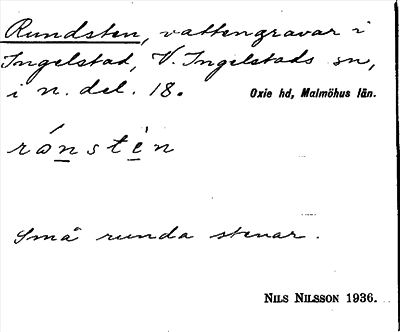 Rundsten, vattengravar i
Ingelstad, V. Ingelstads sn,
i n. del. 18. Oxie hd, Malmöhus län.
rónstèn
Små runda stenar.
NILS NILSSON 1936.